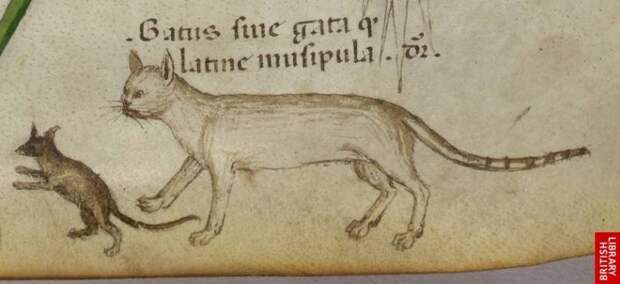 .Gatus siue gata q̇
latine musipula .dr̄.
BRITISH
LIBRARY